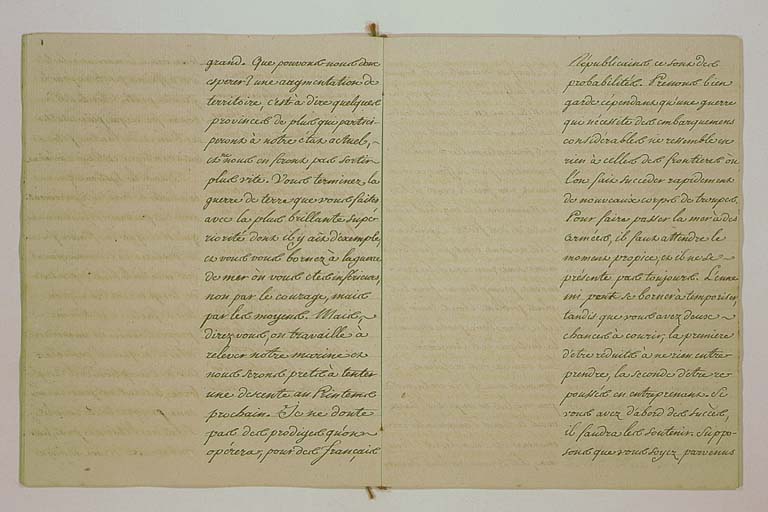 grand. Que pouvons nous donc
esperer? une augmentation de
territoire, c'est à dire quelques
provinces de plus qui partici-
peront à notre état actuel,
et nous en feront pas sortir
plus vite. Vous terminez la
guerre de terre que vous faites
avec la plus brillante supé-
riorité dont il y ait d'exemple,
et vous vous bornez à la guerre
de mer où vous etes inférieurs,
non par le courage, mais
par les moyens. Mais,
direz vous, on travaille à
relever notre marine et
nous serons prets à tenter
une descente au Printems
prochain. Je ne doute
pas des prodiges qu'on
opérera, pour des français
Républicains ce sont des
probabilités. Prenons bien
garde cépendant qu'une guerre
qui nécessite des embarquemens
considérables ne ressemble en
rien à celles des frontières où
l'on fait succéder rapidement
de nouveaux corps de troupes.
Pour faire passer la mer à des
armées, il faut attendre le
moment propice, et il ne se
présente pas toujours. L'enne
mi peut se borner à temporiser,
tandis que vous avez deux
chances à courir, la premiere
d'etre réduits à ne rien entre-
prendre, la seconde d'etre re-
poussés en entreprenant. Si
vous avez d'abord des succès,
il faudra les soutenir. Suppo-
sons que vous soyez parvenus